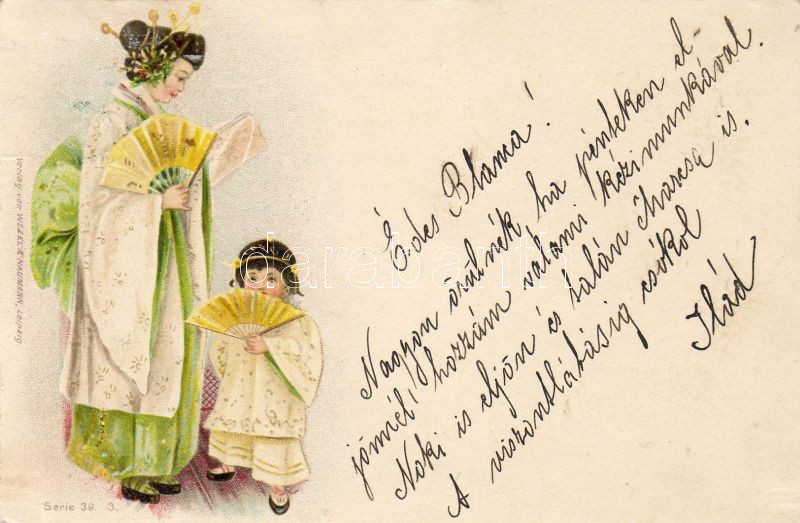 Édes Blanca!
Nagyon örülnék ha pénteken el-
jönnél hozzám valami kézimunkával.
Noki is eljön és talán Marcsa is.
A viszontlátásig csókol
Ilád
Verlag von WEZEL & NAUMANN, Leipzig.
Serie 39. 3.
darabanth